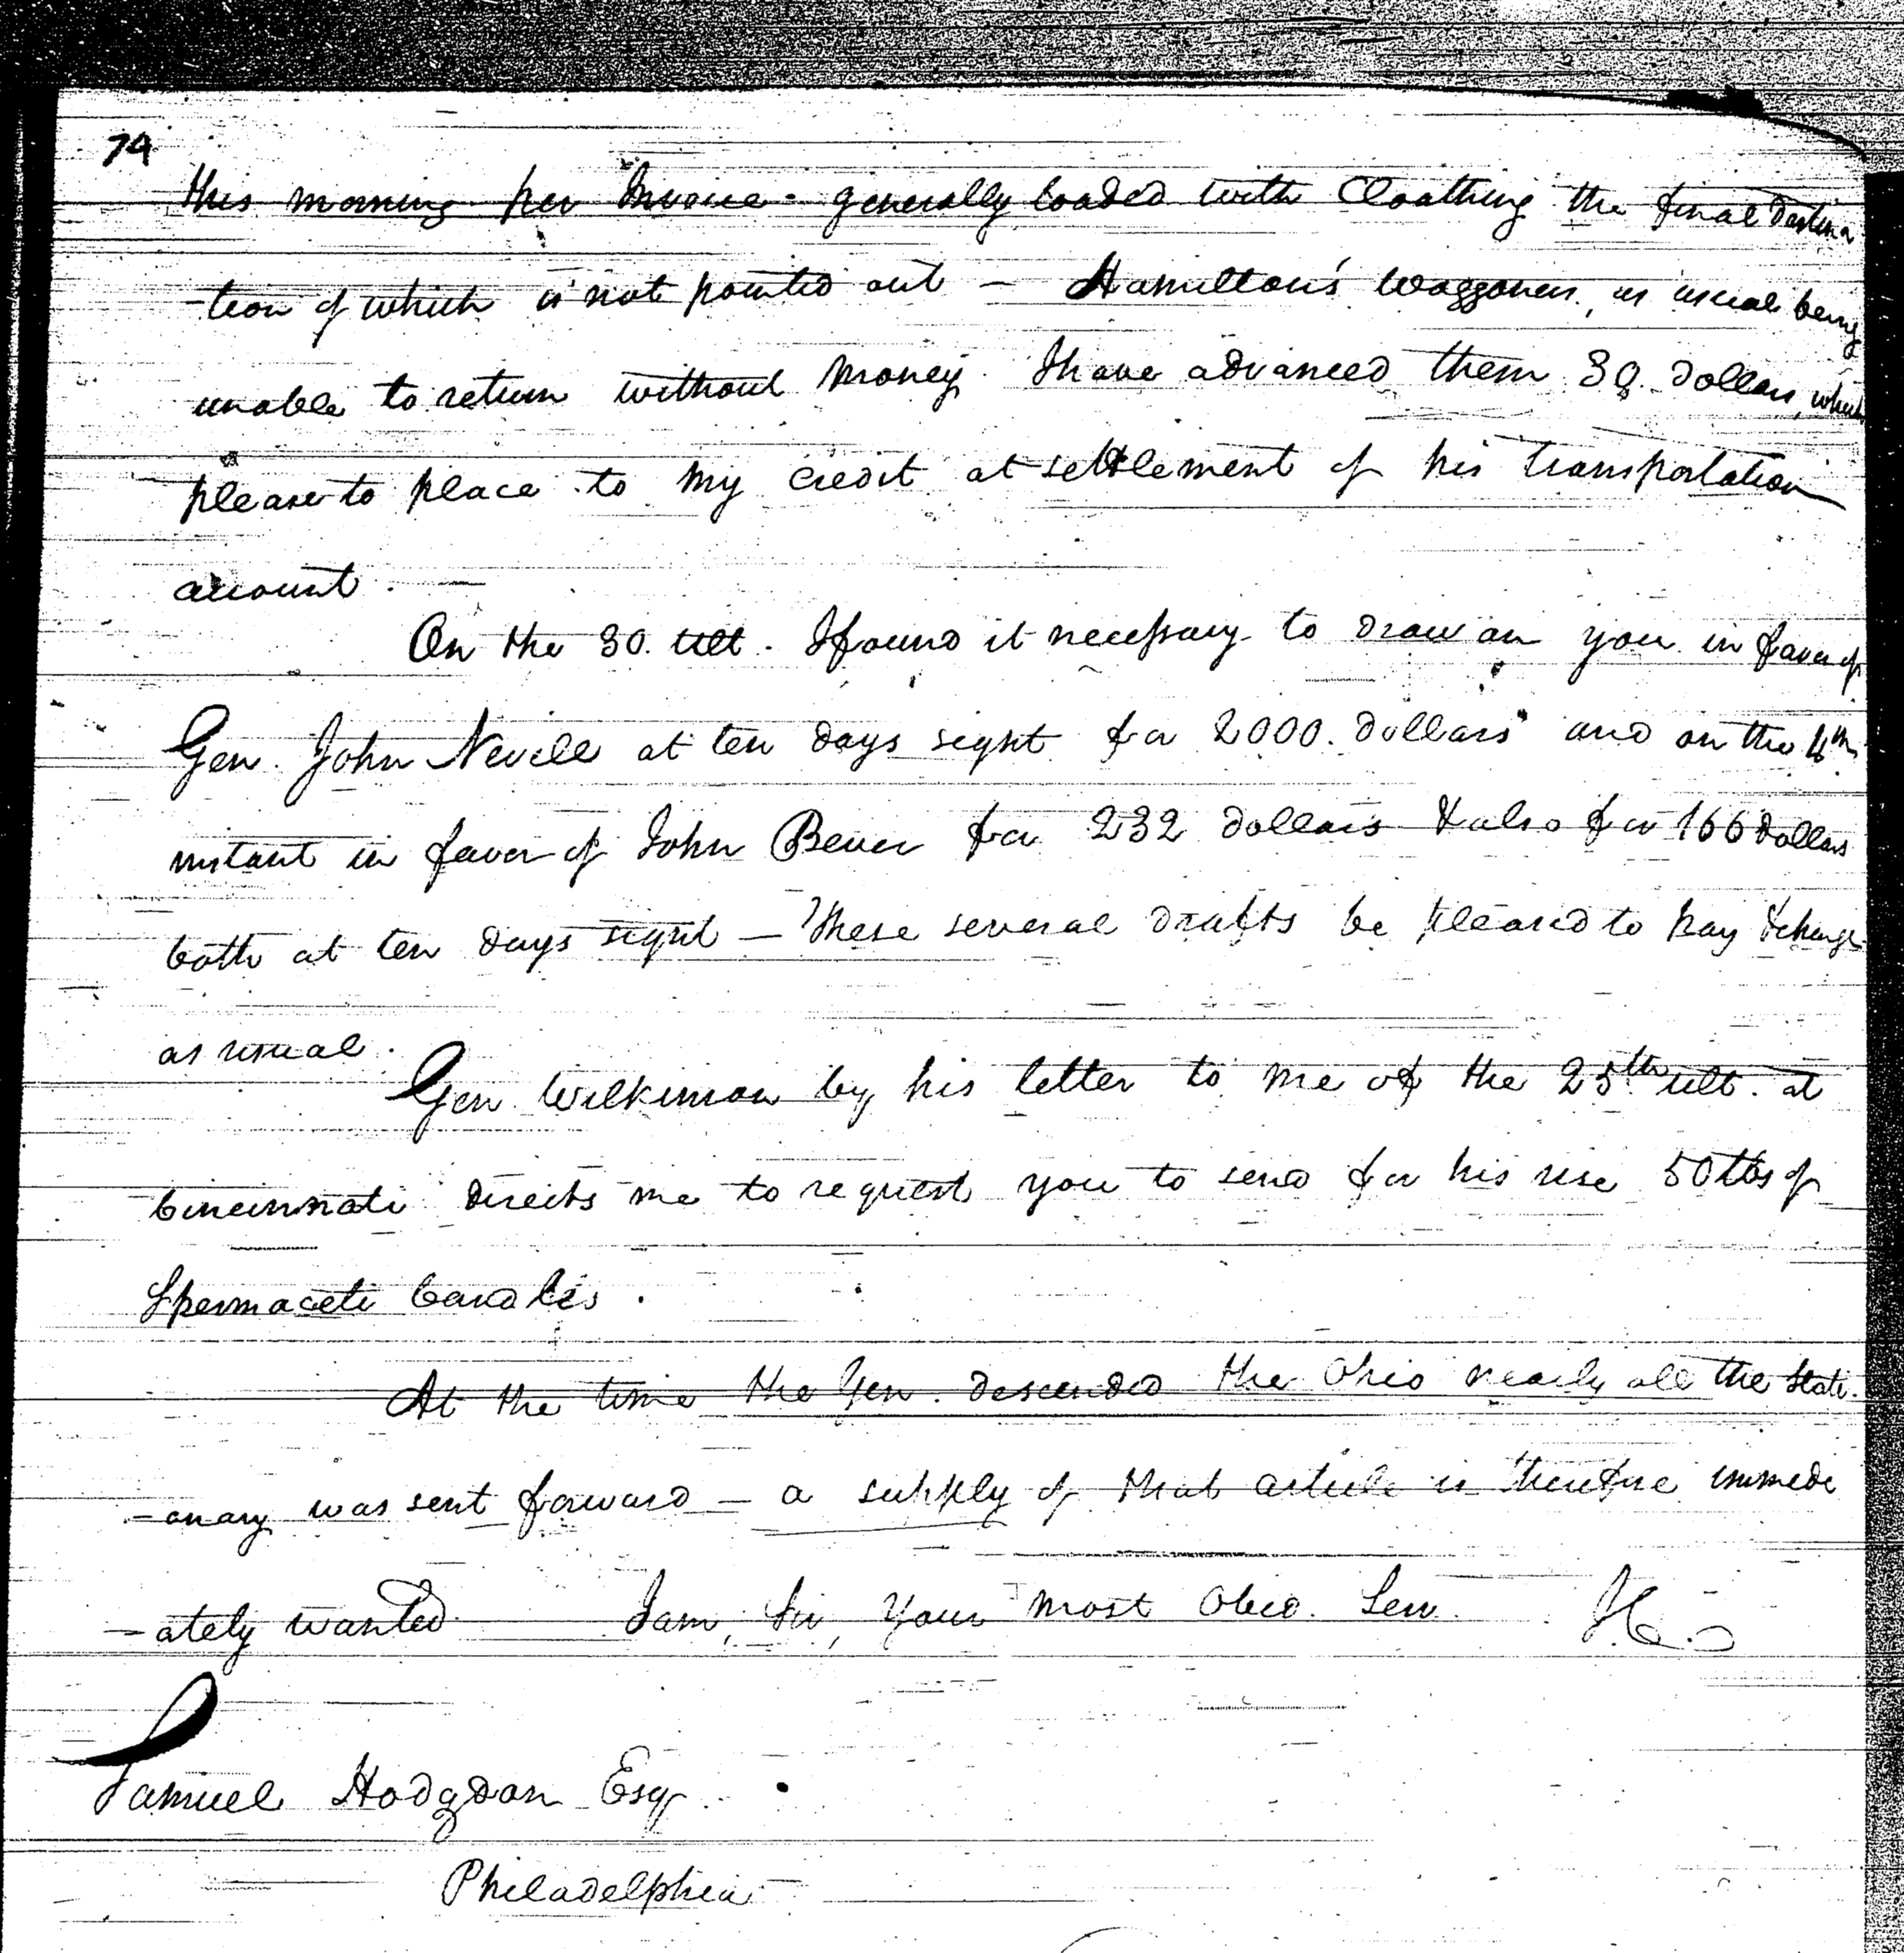 74
this morning per Invoice - generally loaded with Cloathing the final destina
-tion of which is not pointed out - Hamilton's Waggoners, as usual being
unable to return without money. I have advanced them 30 dollars, which
please to place to my credit at settlement of his transportation
account. -
On the 30. ult. I found it necessary to draw on you in favor of
Gen. John Nevill at ten days sight for 2000. dollars and on the 4th
instant in favor of John Bever for 232 dollars & also for 166 dollars
both at ten days sight - These several drafts be pleased to pay & charge
as usual.
Gen Wilkinson by his letter to me of the 25th ult. at
Cincinnati directs me to request you to send for his use 50 lbs of
Spermaceti Candles.
At the time the Gen. descended the Ohio nearly all the Stati.
-onary was sent forward - a supply of that article is therefore immedi
-ately wanted I am, Sir, Your most Obed. Serv.
Samuel Hodgdon Esqr.
Philadelphia